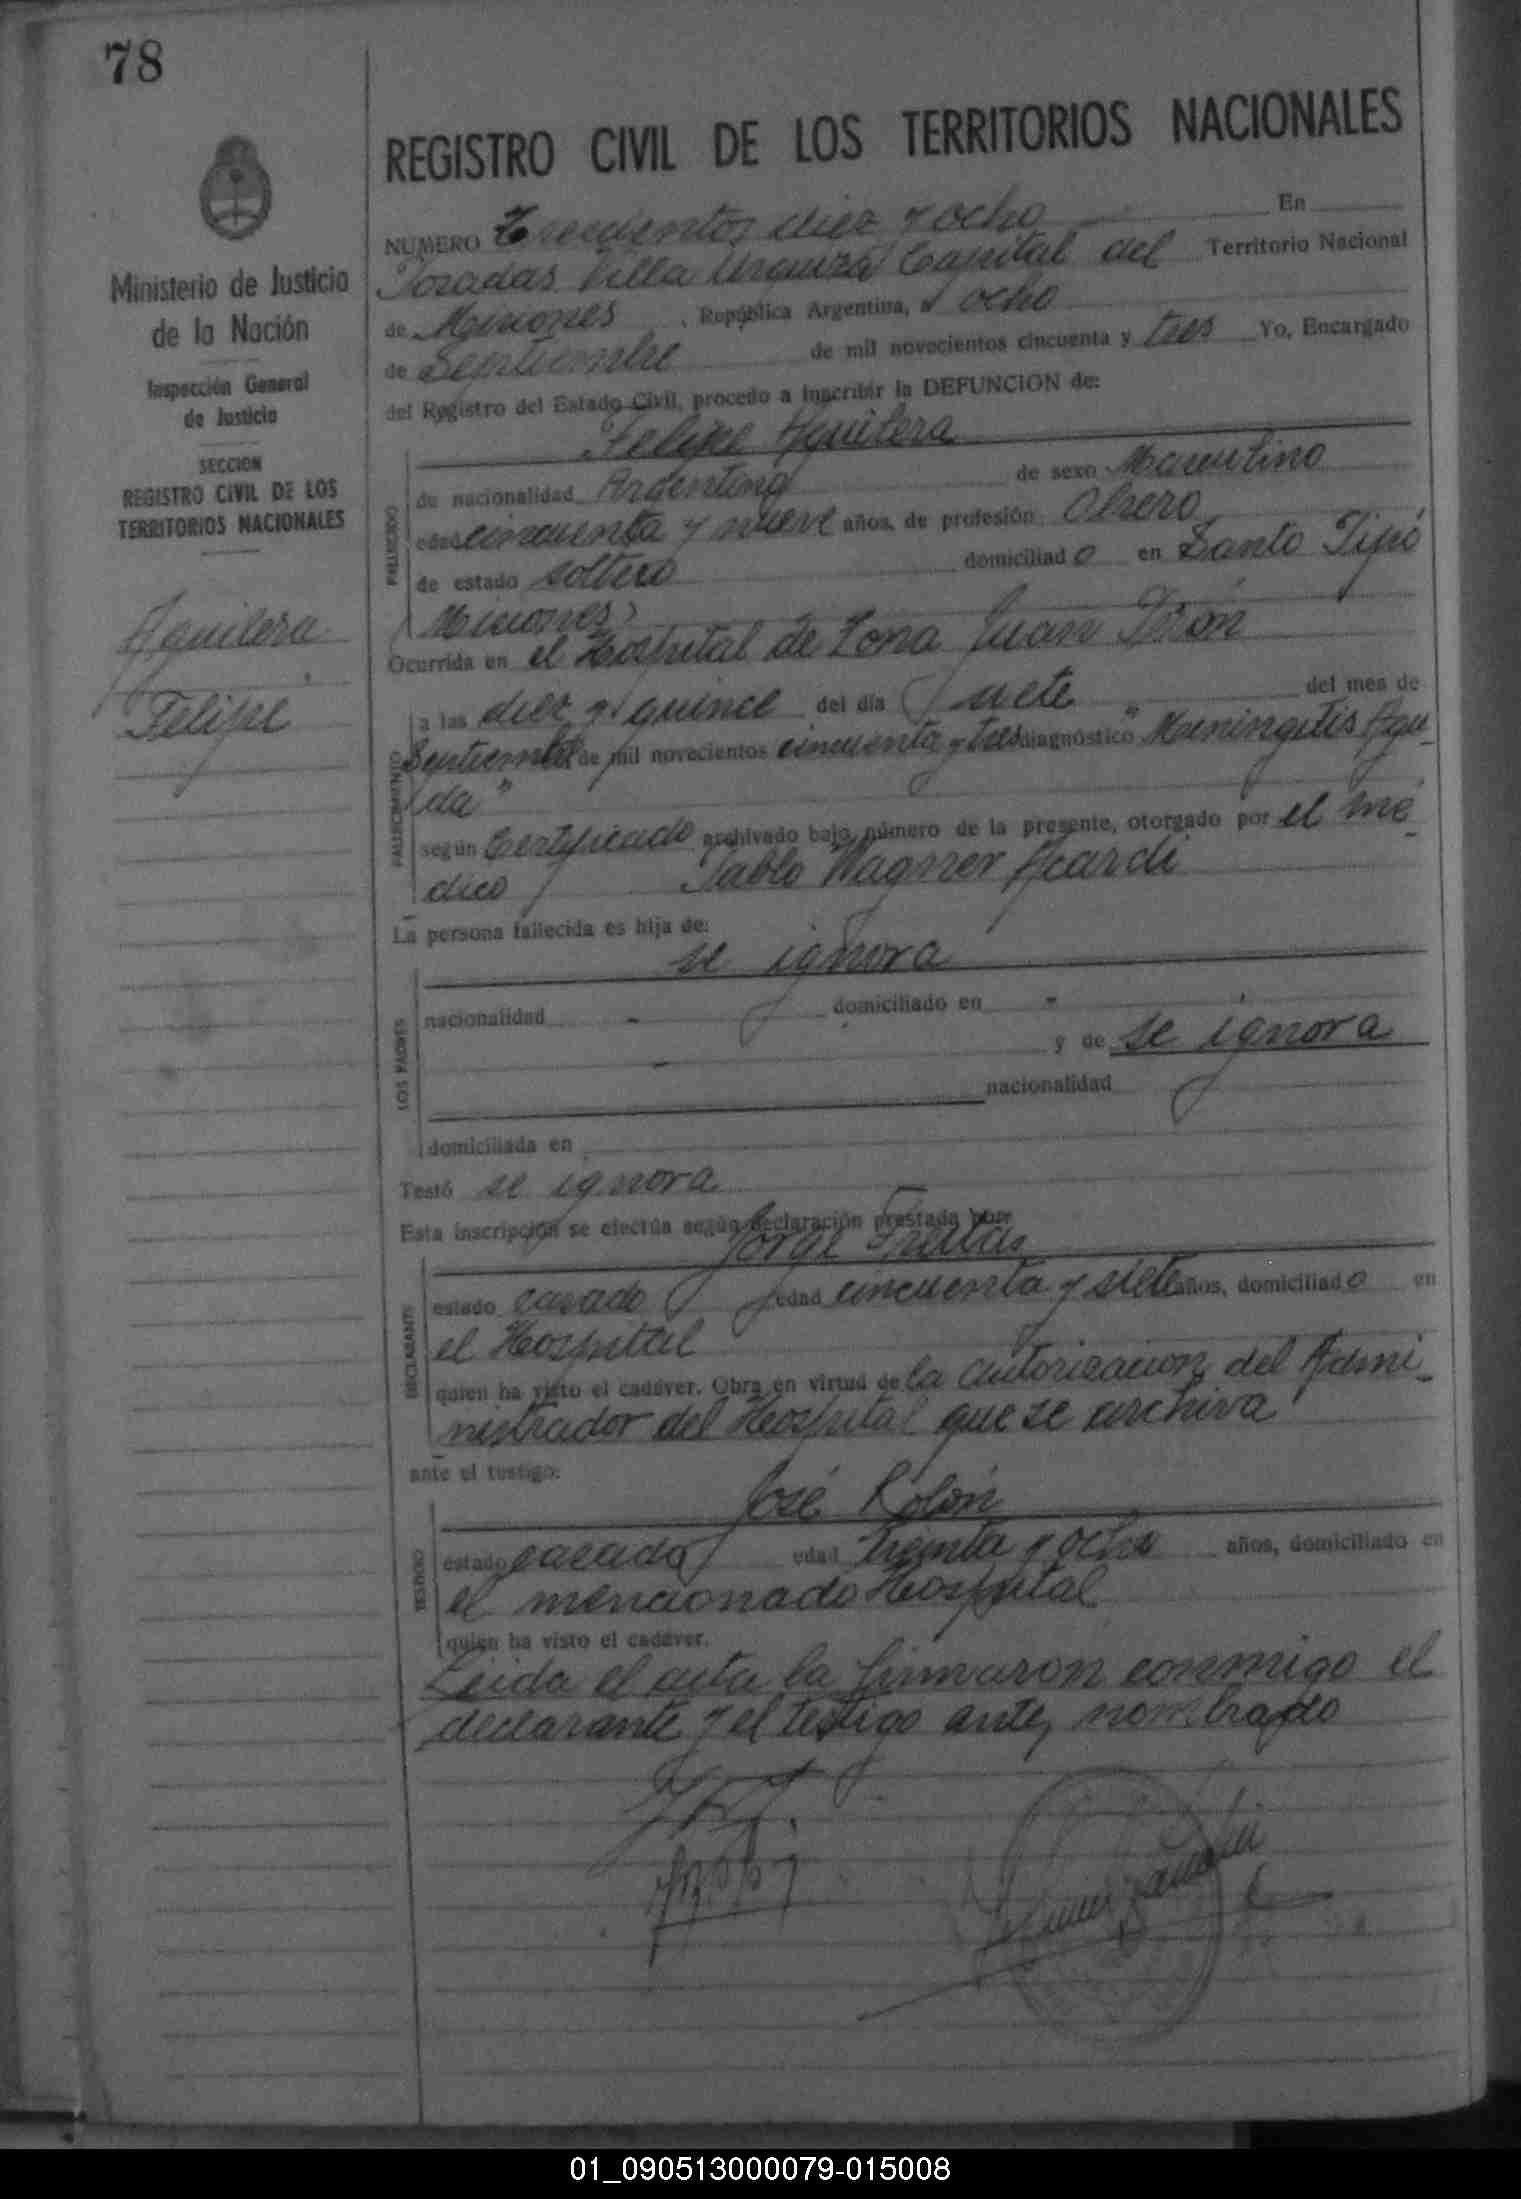 78
REGISTRO CIVIL DE LOS TERRITORIOS NACIONALES
Ministerio de Justicia
de la Nación
Inspección General
de Justicia
SECCION
REGISTRO CIVIL DE LOS
TERRITORIOS NACIONALES
Aguilera
Felipe
NUMERO Trecientos diez y ocho En
Posadas Villa Urquiza Capital del Territorio Nacional
de Misiones, República Argentina, a ocho
de Septiembre de mil novecientos cincuenta y tres Yo, Encargado
del Registro del Estado Civil, procedo a inscribir la DEFUNCION de:
Felipe Aguilera
FALLECIDO
de nacionalidad Argentina de sexo Masculino
edad cincuenta y nueve años, de profesión Obrero
de estado soltero domiciliado en Santo Pipó
Misiones
Ocurrida en el Hospital de Zona Juan Perón
FALLECIMIENTO
a las diez y quince del día siete del mes de
Septiembre de mil novecientos cincuenta y tres diagnóstico "Meningitis Agu-
da"
según Certificado archivado bajo número de la presente, otorgado por el mé-
dico Pablo Wagner Acardi
La persona fallecida es hija de:
se ignora
LOS PADRES
nacionalidad - domiciliado en -
- y de se ignora
nacionalidad
domiciliada en
Testó se ignora
Esta inscripción se efectúa según declaración prestada por:
Jorge Freitas
DECLARANTE
estado casado edad cincuenta y siete años, domiciliado en
el Hospital
quien ha visto el cadáver. Obra en virtud de la autorizacion del Admi-
nistrador del Hospital que se archiva
ante el testigo:
José Rolón
TESTIGO
estado casado edad treinta y ocho años, domiciliado en
el mencionado Hospital
quien ha visto el cadáver.
Leida el acta la firmaron conmigo el
declarante y el testigo antes nombrado
01_090513000079-015008